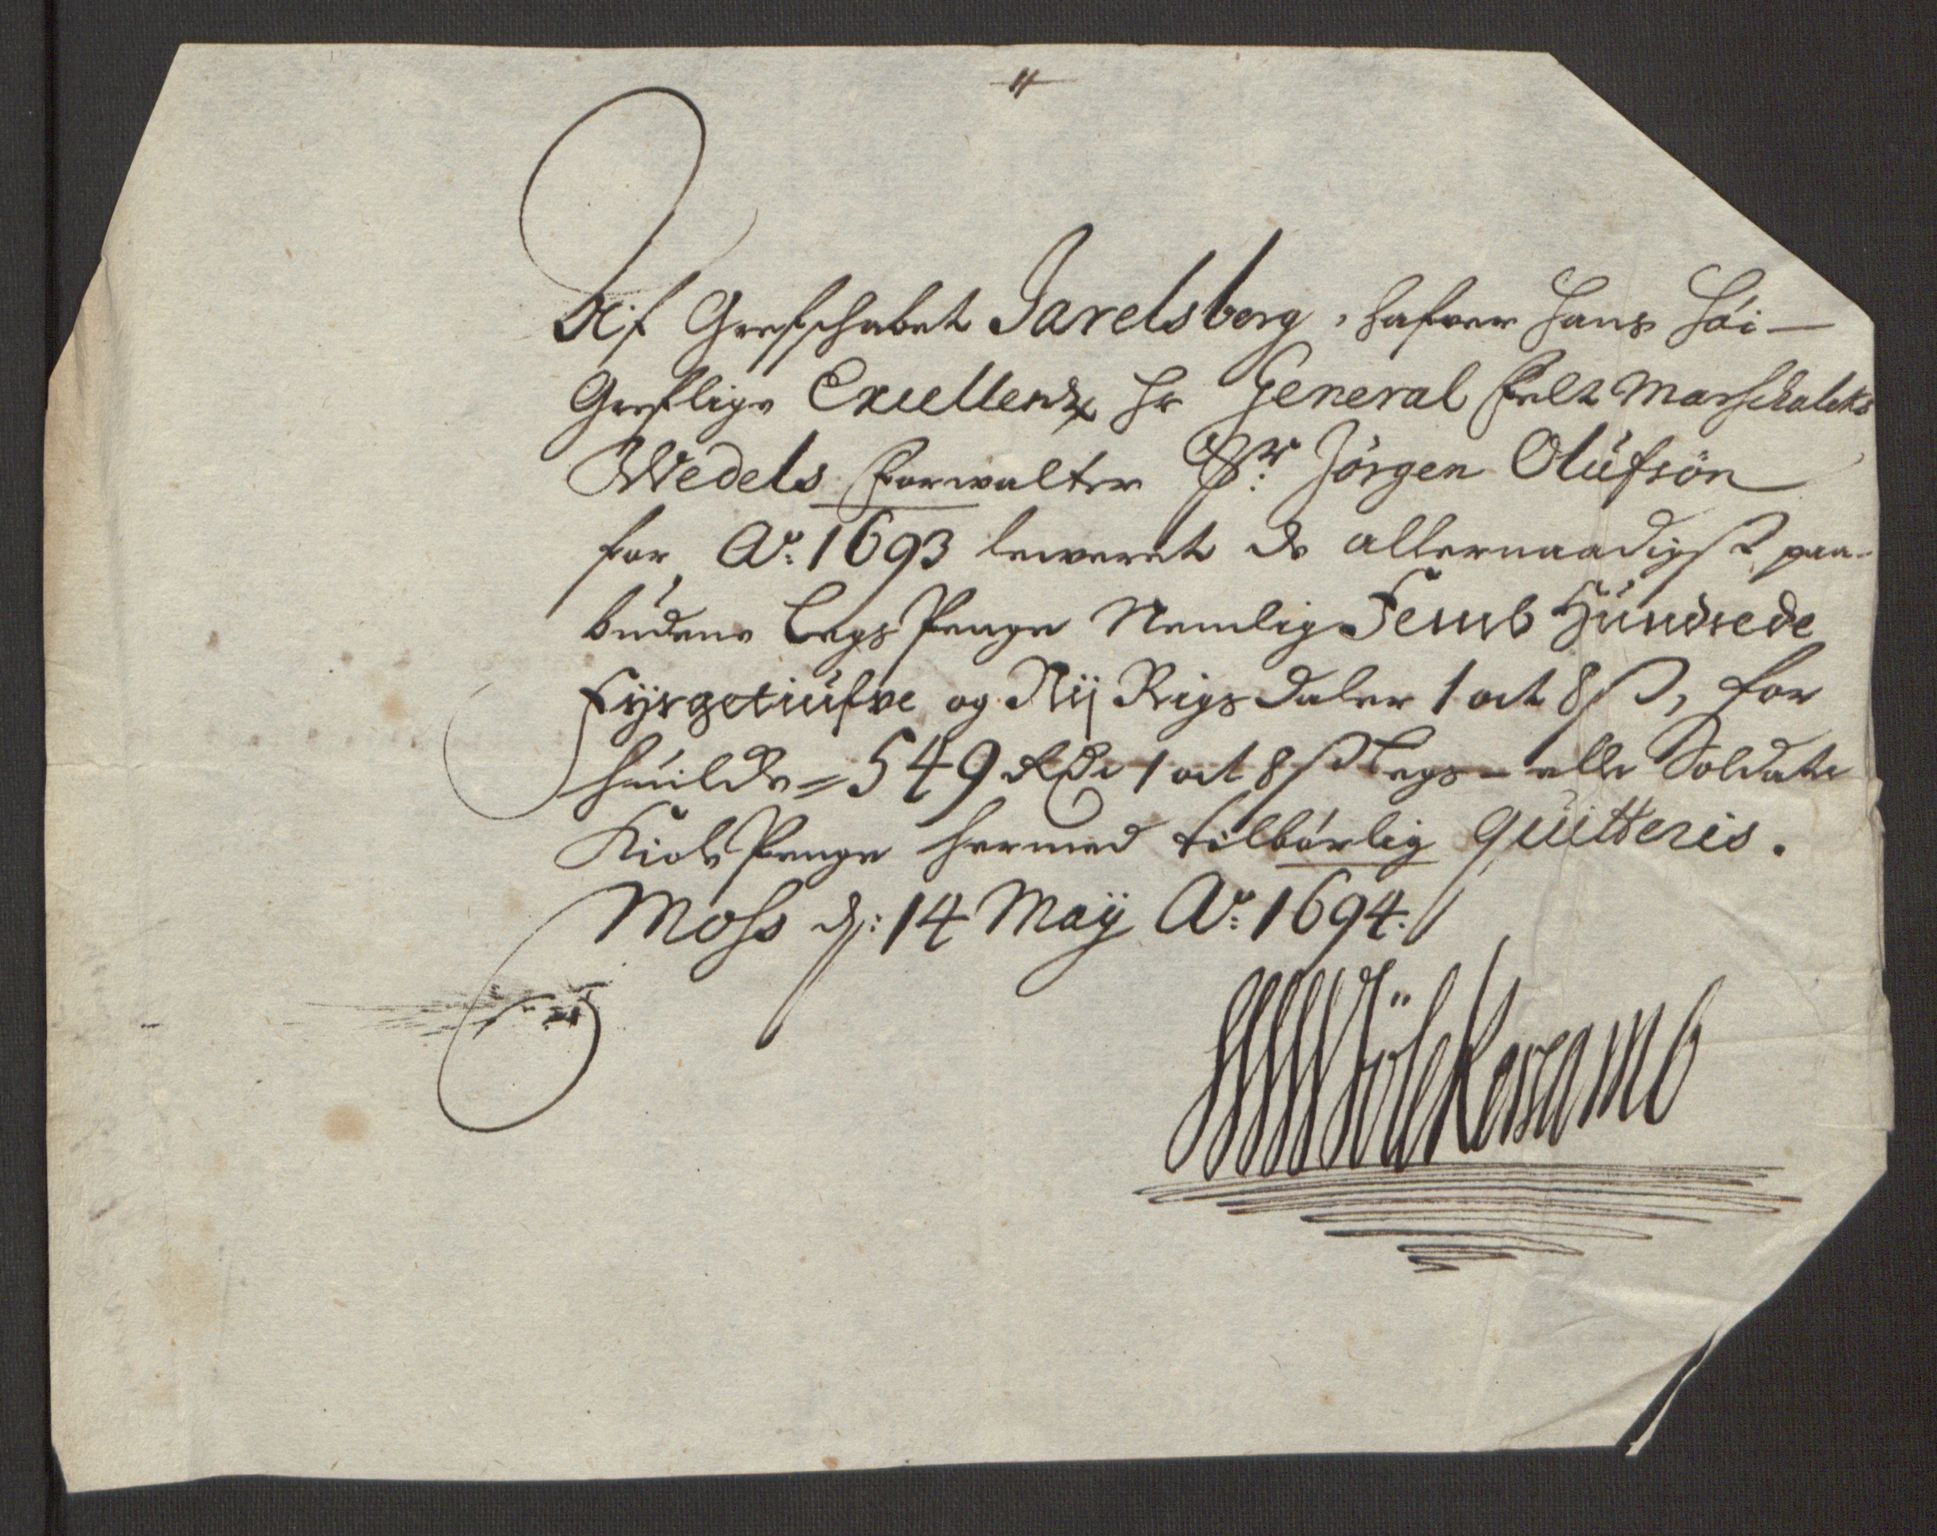 Af Grefschabet Jarelsberg, hafver Hans Höi-
Greflige Excellentz Hr General Felt Marschalcks
Wedels Forwalter Sr. Jörgen Olüfsön
for Ao. 1693 leweret de allernaadigst paa-
budene Legs Penge Nemlig Femb Hündrede
Fÿrgetiüfve og Nij Rigs daler 1 ort 8 ß, for
huilcke = 549 Rdr 1 ort 8 ß Legs- eller Soldate
Kiole Penge hermed tilbörlig quitteris.
Moss d: 14 Maÿ Ao. 1694.